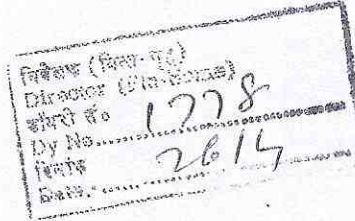 निदेशक (वित्त-गृह)
Director (Fin-Home)
डायरी सं०
Dy No. 1778
दिनांक 26/4
Date.